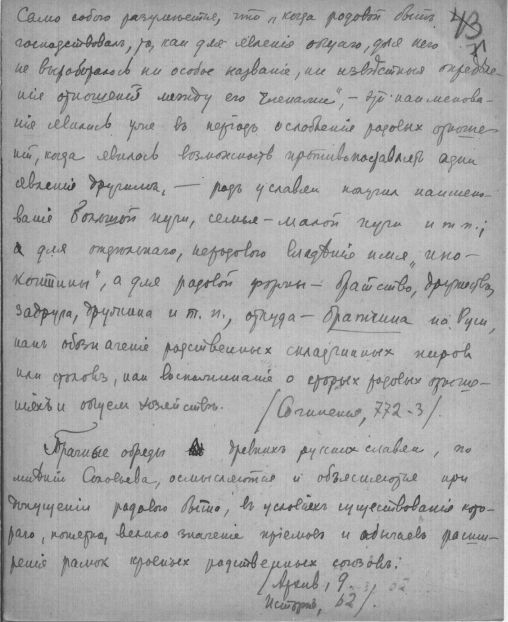 Само собою разумѣется, что „когда родовой бытъ
господствовалъ, то, как для явленія общаго, для него
не выработалось ни особое названіе, ни извѣстныя опредѣле-
нія отношеній между его членами", – эти наименова-
нія явились уже въ періодъ ослабленія родовых отноше-
ній, когда явилась возможность противопоставлять одни
явленія другимъ, – родъ у славян получил наимено-
ваніе большой кучи, семья – малой кучи и т. п.;
а для отдѣльнаго, неродового владѣнія имя „ино-
коштины", а для родовой формы – братство, дружество,
задруга, дружина и т. п., откуда – братчина на Руси,
как обозначеніе родственных складчинных пиров
или столовъ, как воспоминаніе о старых родовых отноше-
ніяхъ и общем хозяйствѣ. / Сочиненія, 772-3/.
Брачные обряды древних русских славян, по
мнѣнію Соловьева, осмысляются и объясняются при
допущеніи родового быта, въ условіях существованія кото-
раго, понятно, велико значеніе пріемов и обычаев расши-
ренія рамок кровных родственных союзовъ:
/ Архив, 9
Исторія, 62/.
43